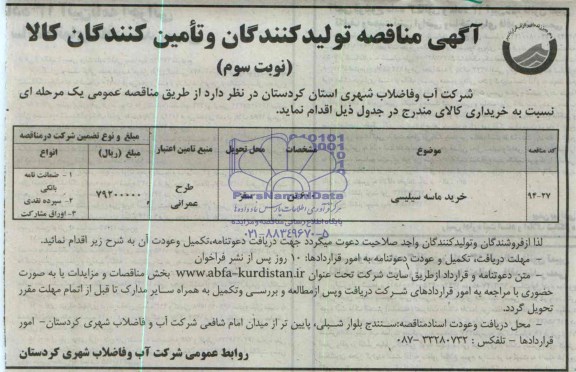 آگهی مناقصه تولیدکنندگان وتأمین کنندگان کالا
(نوبت سوم)
شرکت آب وفاضلاب شهری استان کردستان در نظر دارد از طریق مناقصه عمومی یک مرحله ای
نسبت به خریداری کالای مندرج در جدول ذیل اقدام نماید.
کد مناقصه موضوع مشخصات محل تحویل منبع تامین اعتبار مبلغ و نوع تضمین شرکت درمناقصه
مبلغ (ریال) انواع
۹۴-۲۷ خرید ماسه سیلیسی سقز طرح عمرانی ۷۹۲۰۰۰۰۰
۱- ضمانت نامه
بانکی
۲- سپرده نقدی
۳- اوراق مشارکت
ParsNamadData
پایگاه اطلاع رسانی مناقصه و مزایده
۰۲۱-۸۸۳۴۹۶۷۰-۵
لذا ازفروشندگان وتولیدکنندگان واجد صلاحیت دعوت میگردد جهت دریافت دعوتنامه،تکمیل وعودت آن به شرح زیر اقدام نمائید.
- مهلت دریافت، تکمیل و عودت دعوتنامه به امور قراردادها: ۱۰ روز پس از نشر فراخوان
- متن دعوتنامه و قرارداد ازطریق سایت شرکت تحت عنوان www.abfa-kurdistan.ir بخش مناقصات و مزایدات یا به صورت
حضوری با مراجعه به امور قراردادهای شرکت دریافت وپس ازمطالعه و بررسی وتکمیل به همراه سایر مدارک تا قبل از اتمام مهلت مقرر
تحویل گردد.
- محل دریافت وعودت اسنادمناقصه:سنندج بلوار شبلی، پایین تر از میدان امام شافعی شرکت آب و فاضلاب شهری کردستان- امور
قراردادها - تلفکس : ۳۳۲۸۰۷۳۲ -۰۸۷
روابط عمومی شرکت آب وفاضلاب شهری کردستان